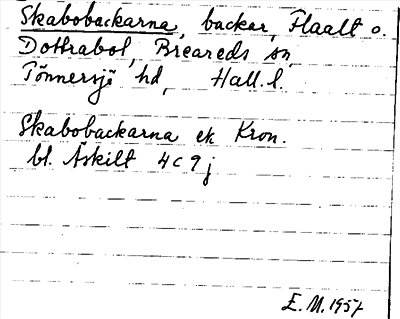 Skabobackarna, backar, Flaalt o.
Dottrabol, Breareds sn,
Tönnersjö hd, Hall. l.
Skabobackarna ek Kron.
bl. Åskilt 4c9j
E.M. 1957